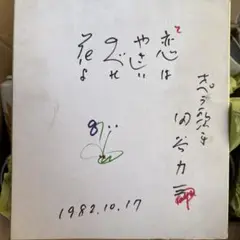 オペラ歌手
田谷力三
恋は
やさしい
のべの
花よ
1982.10.17